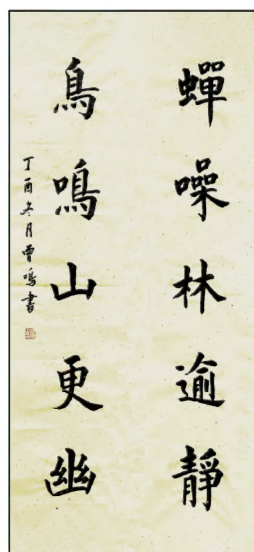 蟬噪林逾靜
鳥鳴山更幽
丁酉冬月曹鳴書